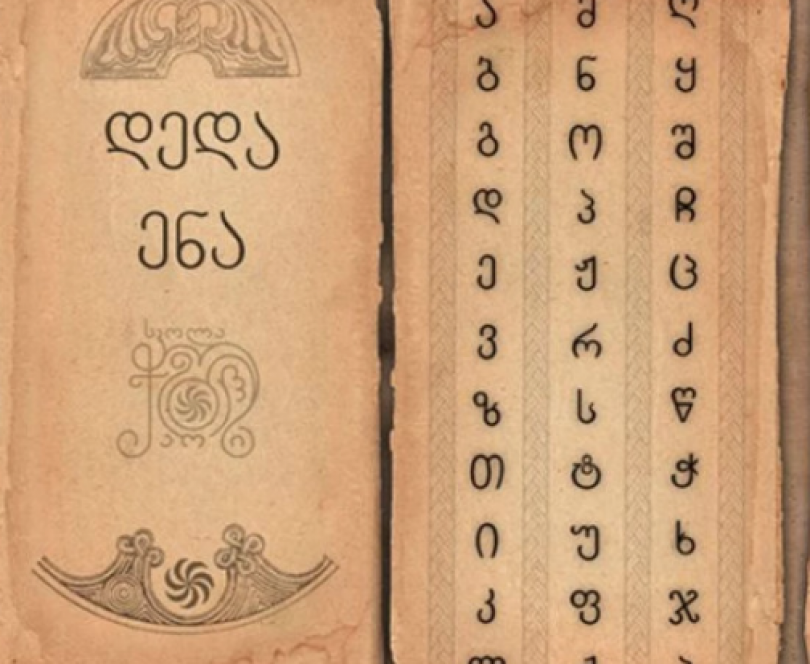 დედა
ენა
სკოლა
ა მ ღ
ბ ნ ყ
გ ო შ
დ პ ჩ
ე ჟ ც
ვ რ ძ
ზ ს წ
თ ტ ჭ
ი უ ხ
კ ფ ჯ